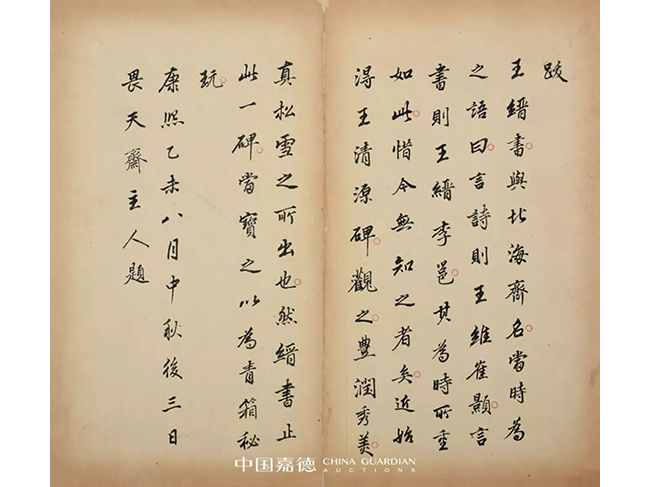 跋
王縉書與北海齊名當時為
之語曰言詩則王維崔顥言
書則王縉李邕其為時所重
如此惜今無知之者矣近始
得王清源碑觀之豊潤秀美
真松雪之所出也然縉書止
此一碑當寶之以為青箱秘
玩
康熙乙未八月中秋後三日
畏天齋主人題
中国嘉德 CHINA GUARDIAN
AUCTIONS